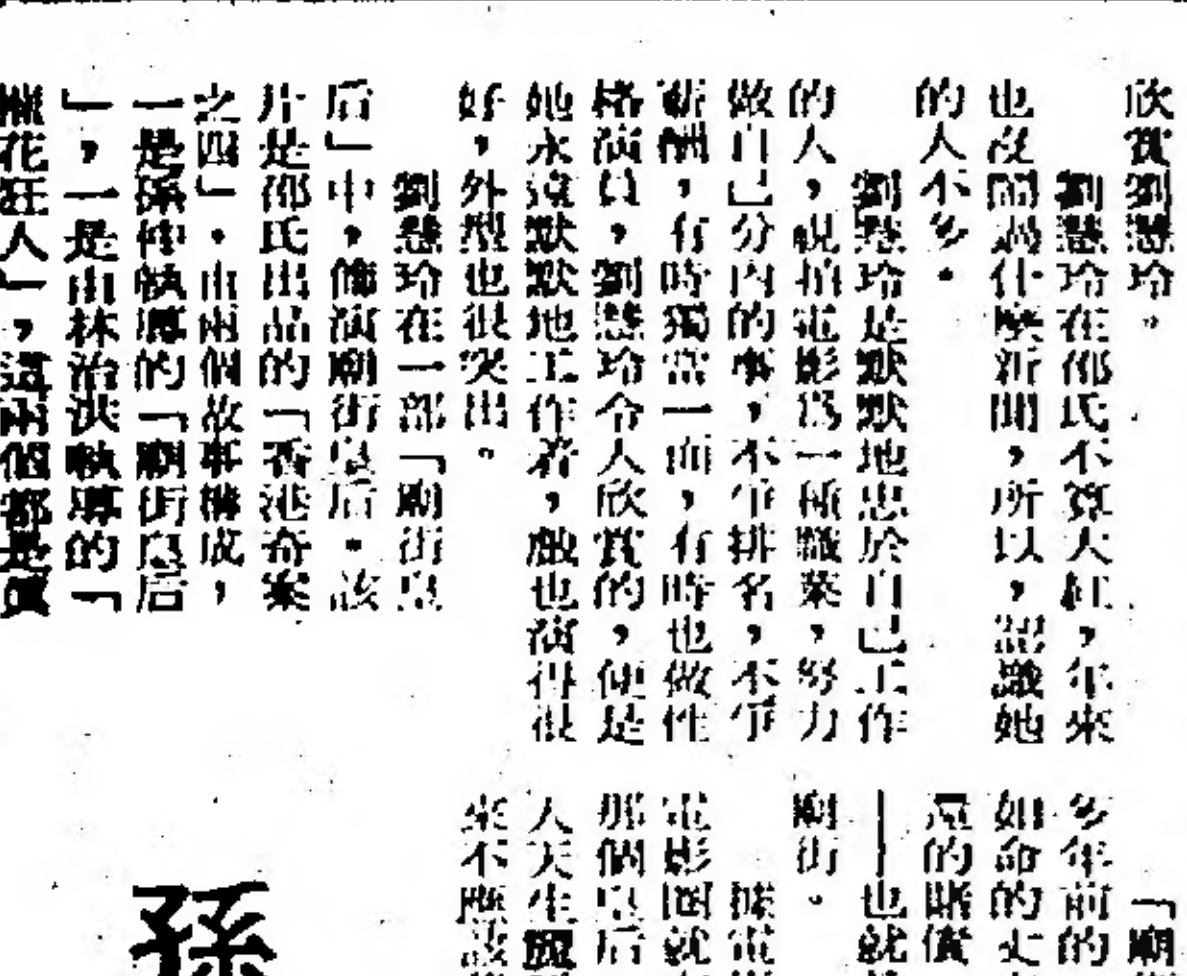 欣賞劉慧玲。
劉慧玲在邵氏不算大紅,年來
也沒鬧過什麼新聞,所以,認識她
的人不多。
劉慧玲是默默地忠於自己工作
的人,視拍電影爲一種職業,努力
做自己分內的事,不爭排名,不爭
薪酬,有時獨當一面,有時也做性
格演員,劉慧玲令人欣賞的,便是
她永遠默默地工作着,戲也演得很
好,外型也很突出。
劉慧玲在一部「廟街皇
后」中,飾演廟街皇后。該
片是邵氏出品的「香港奇案
之四」,由兩個故事構成,
一是孫仲執導的「廟街皇后
」,一是由林治洪執導的「
摧花狂人」,這兩個都是眞
「廟
多年前的
如命的丈
還的賭債
——也就
廟街。
據電
電影圈就
那個皇后
人天生麗
來不應該
孫